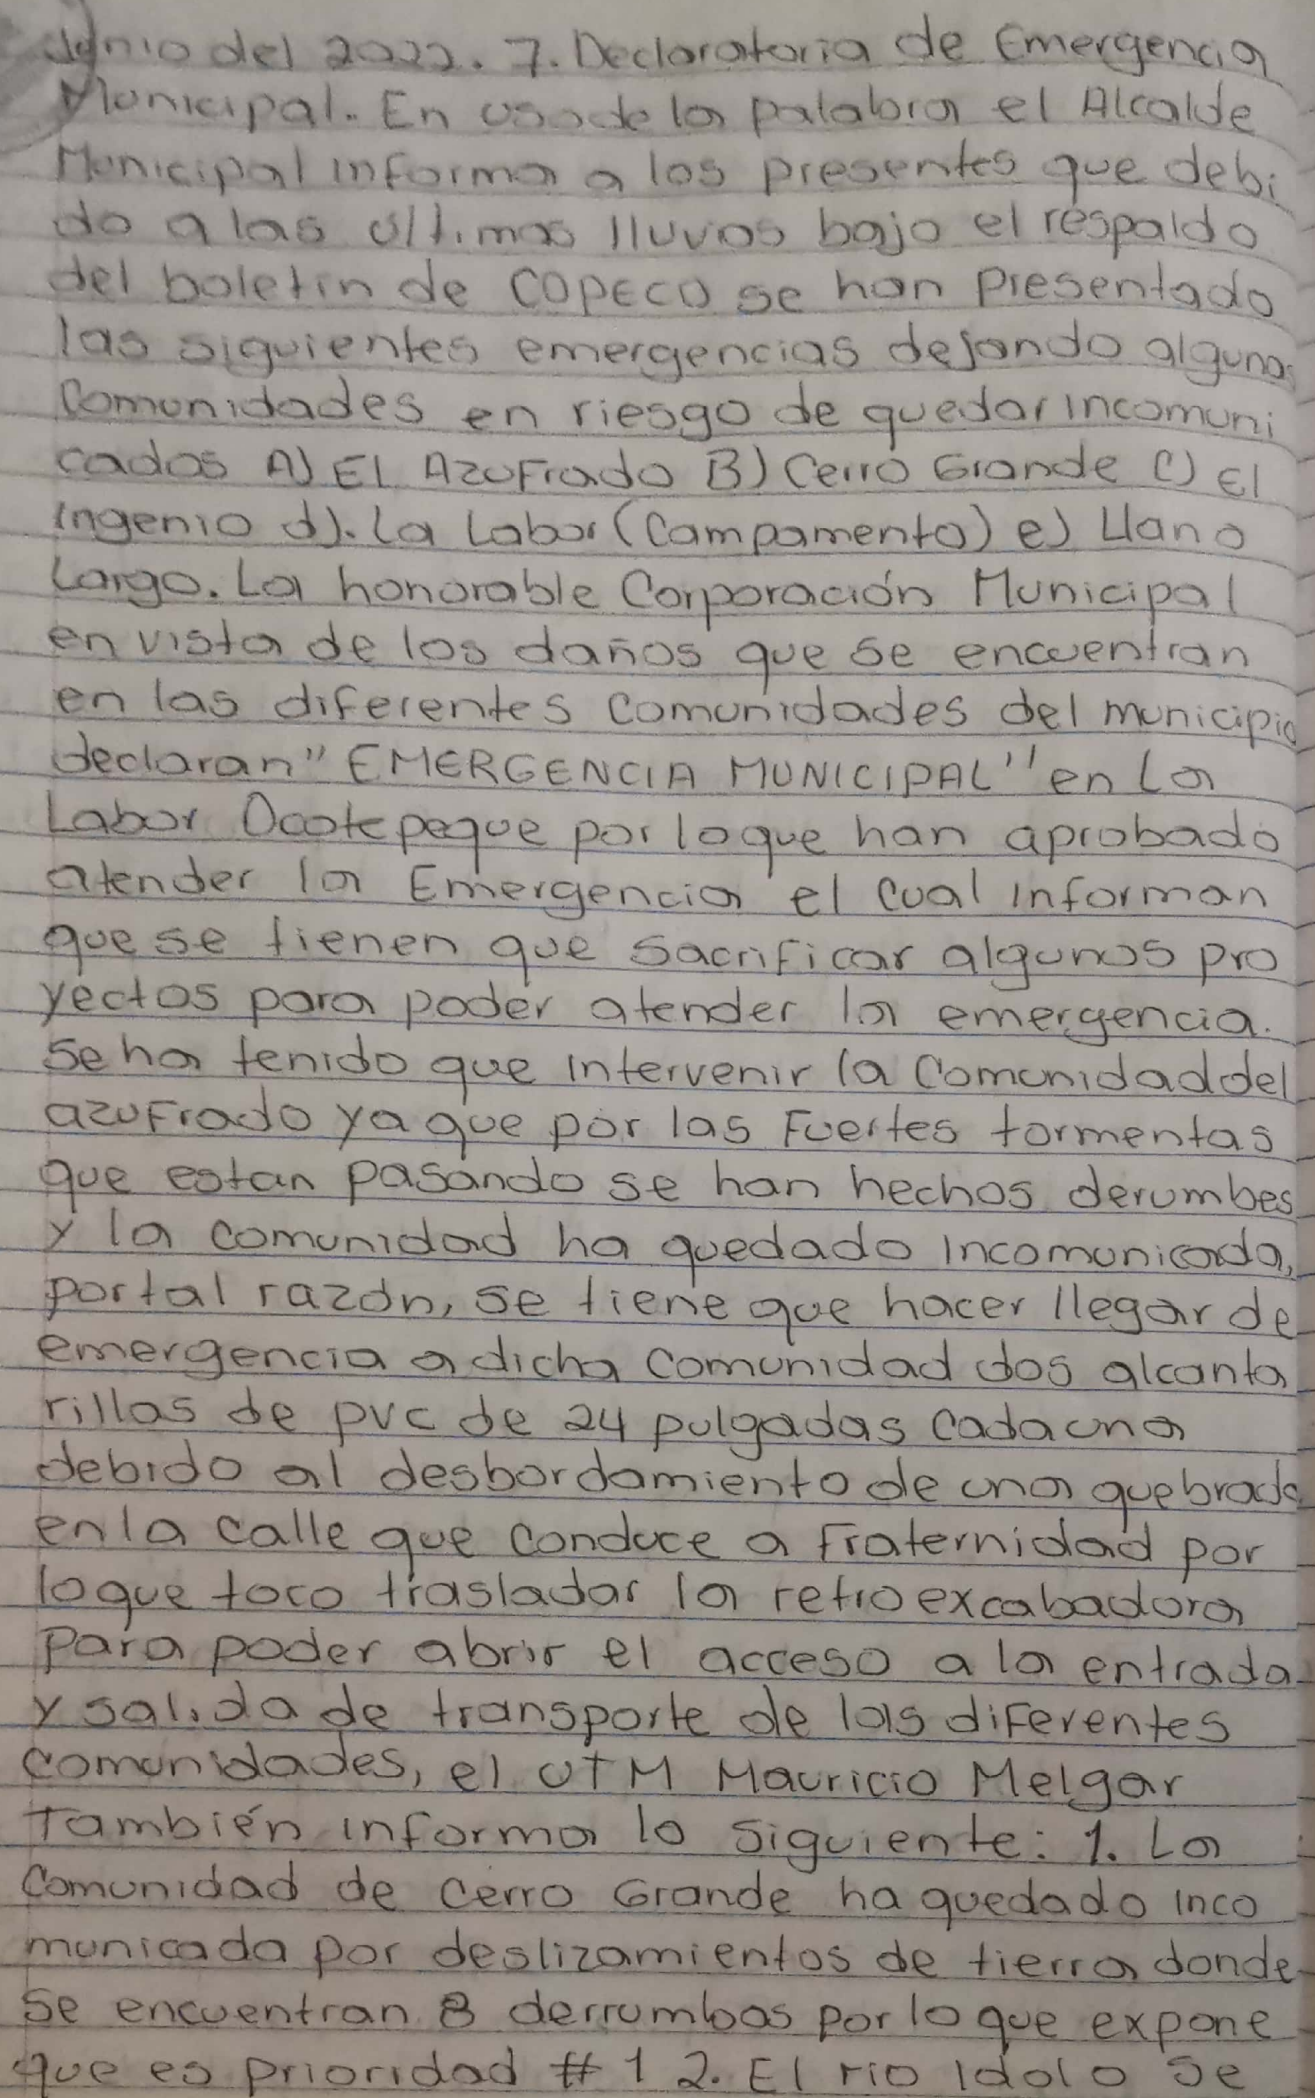 Junio del 2022. 7. Declaratoria de Emergencia
Municipal. En uso de la palabra el Alcalde
Municipal informa a los presentes que debi
do a las últimas lluvias bajo el respaldo
del boletin de COPECO se han presentado
las siguientes emergencias dejando algunas
Comunidades en riesgo de quedar incomuni
cados A) El Azufrado B) Cerro Grande C) El
Ingenio d). La Labor (Campamento) e) Llano
Largo. La honorable Corporación Municipal
en vista de los daños que se encuentran
en las diferentes comunidades del municipio
declaran "EMERGENCIA MUNICIPAL" en La
Labor Ocotepeque por lo que han aprobado
atender la Emergencia el cual informan
que se tienen que sacrificar algunos pro
yectos para poder atender la emergencia.
Se ha tenido que intervenir la Comunidad del
azufrado ya que por las Fuertes tormentas
que estan pasando se han hechos derumbes
y la comunidad ha quedado incomunicada,
por tal razón, se tiene que hacer llegar de
emergencia a dicha comunidad dos alcanta
rillas de pvc de 24 pulgadas cada una
debido al desbordamiento de una quebrada
en la calle que conduce a Fraternidad por
lo que toco trasladar la retroexcabadora
para poder abrir el acceso a la entrada
y salida de transporte de las diferentes
comunidades, el UTM Mauricio Melgar
También informa lo siguiente: 1. La
Comunidad de Cerro Grande ha quedado inco
municada por deslizamientos de tierra donde
se encuentran 8 derrumbas por lo que expone
que es prioridad # 1 2. El rio Idolo se